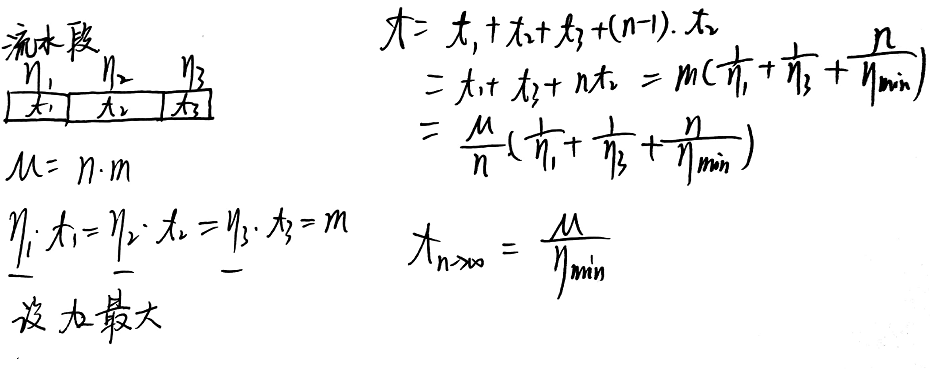 流水段
η₁ η₂ η₃
t₁ t₂ t₃
M = n·m
η₁·t₁ = η₂·t₂ = η₃·t₃ = m
设 t₂ 最大
t = t₁ + t₂ + t₃ + (n-1)·t₂
= t₁ + t₃ + nt₂ = m(1/η₁ + 1/η₃ + n/ηmin)
= M/n (1/η₁ + 1/η₃ + n/ηmin)
t n→∞ = M/ηmin